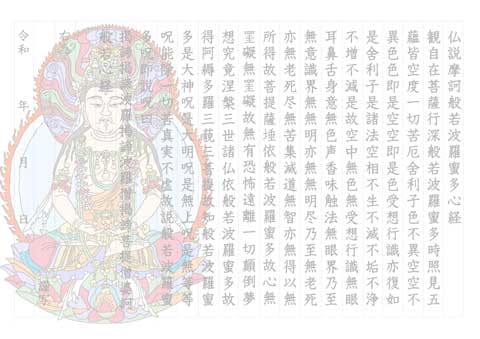 仏説摩訶般若波羅蜜多心経
観自在菩薩行深般若波羅蜜多時照見五
蘊皆空度一切苦厄舎利子色不異空空不
異色色即是空空即是色受想行識亦復如
是舎利子是諸法空相不生不滅不垢不浄
不増不減是故空中無色無受想行識無眼
耳鼻舌身意無色声香味触法無眼界乃至
無意識界無無明亦無無明尽乃至無老死
亦無老死尽無苦集滅道無智亦無得以無
所得故菩提薩埵依般若波羅蜜多故心無
罣礙無罣礙故無有恐怖遠離一切顛倒夢
想究竟涅槃三世諸仏依般若波羅蜜多故
得阿耨多羅三藐三菩提故知般若波羅蜜
多是大神呪是大明呪是無上呪是無等等
呪能除一切苦真実不虚故説般若波羅蜜
多呪即説呪曰
掲諦掲諦波羅掲諦波羅僧掲諦菩提僧莎訶
般若心経
右為
謹写
令和 年 月 日